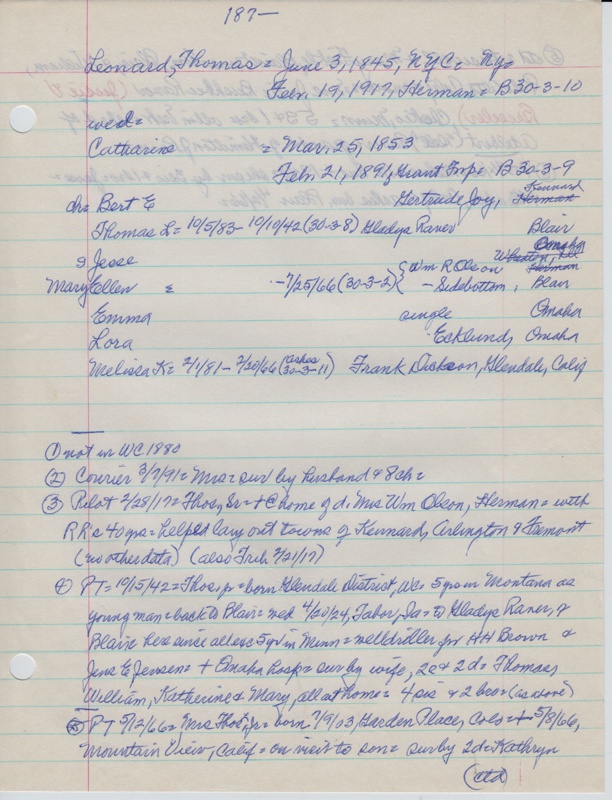 187-
Leonard, Thomas = June 3, 1845, NYC = Ny=
Febr. 19, 1917, Herman = B30-3-10
wed =
Catharine = Mar. 25, 1853
Febr. 21, 1891, Grant Twp = B 30-3-9
ch = Bert E Gertrude Joy, Kennard Herman
Thomas L = 10/5/83 - 10/10/42 (30-3-8) Gladys Raner Blair
& Jesse Omaha
Mary Ellen = - 7/25/66 (30-3-2) { Wm R Olson Wheaton, Ill Herman
- Sidebottom, Blair
Emma single Omaha
Lora Ecklund, Omaha
Melissa K = 2/1/81 - 2/20/66 (ashes 30-3-11) Frank Dickson, Glendale, Calif
① not in WC 1880
② Courier 3/7/91 = Mrs = sur by husband & 8 ch =
③ Pilot 2/28/17 = Thos, Sr = + @ home of d. Mrs Wm Olson, Herman = with
RR @ 40 yrs = helped lay out towns of Kennard, Arlington & Fremont
(no other data) (also Trib 2/21/17)
④ PT = 10/15/42 = Thos, jr = born Glendale District, WC = 5 yrs in Montana as
young man = back to Blair = wed 4/20/24, Tabor, Ia = to Gladys Raner, of
Blair = here since all exc 5 yrs in Minn = welldriller for HH Brown &
Jens E Jensen = + Omaha hosp = sur by wife, 2s & 2 d = Thomas,
William, Katherine & Mary, all at home = 4 sis & 2 bros (as above)
⑤ PT 5/12/66 = Mrs Thos, Jr = born 7/9/03, Garden Place, Colo = + 5/8/66,
Mountain View, Calif = on visit to son = sur by 2d = Kathryn
(ctd)